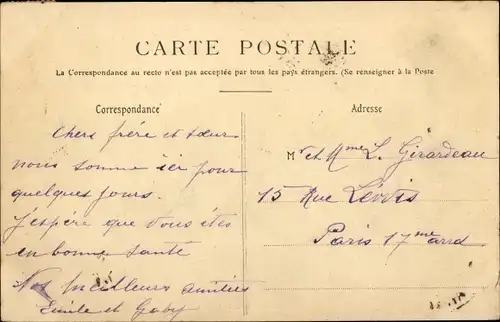 CARTE POSTALE
La Correspondance au recto n'est pas acceptée par tous les pays étrangers. (Se renseigner à la Poste
Correspondance
Chers frére et sœur
nous somme ici pour
quelques jours.
j'espére que vous êtes
en bonne santé
Nos meilleurs amitiés
Emile et Gaby
Adresse
Mr et Mme L. Girardeau
15 Rue Lévis
Paris 17me arrd